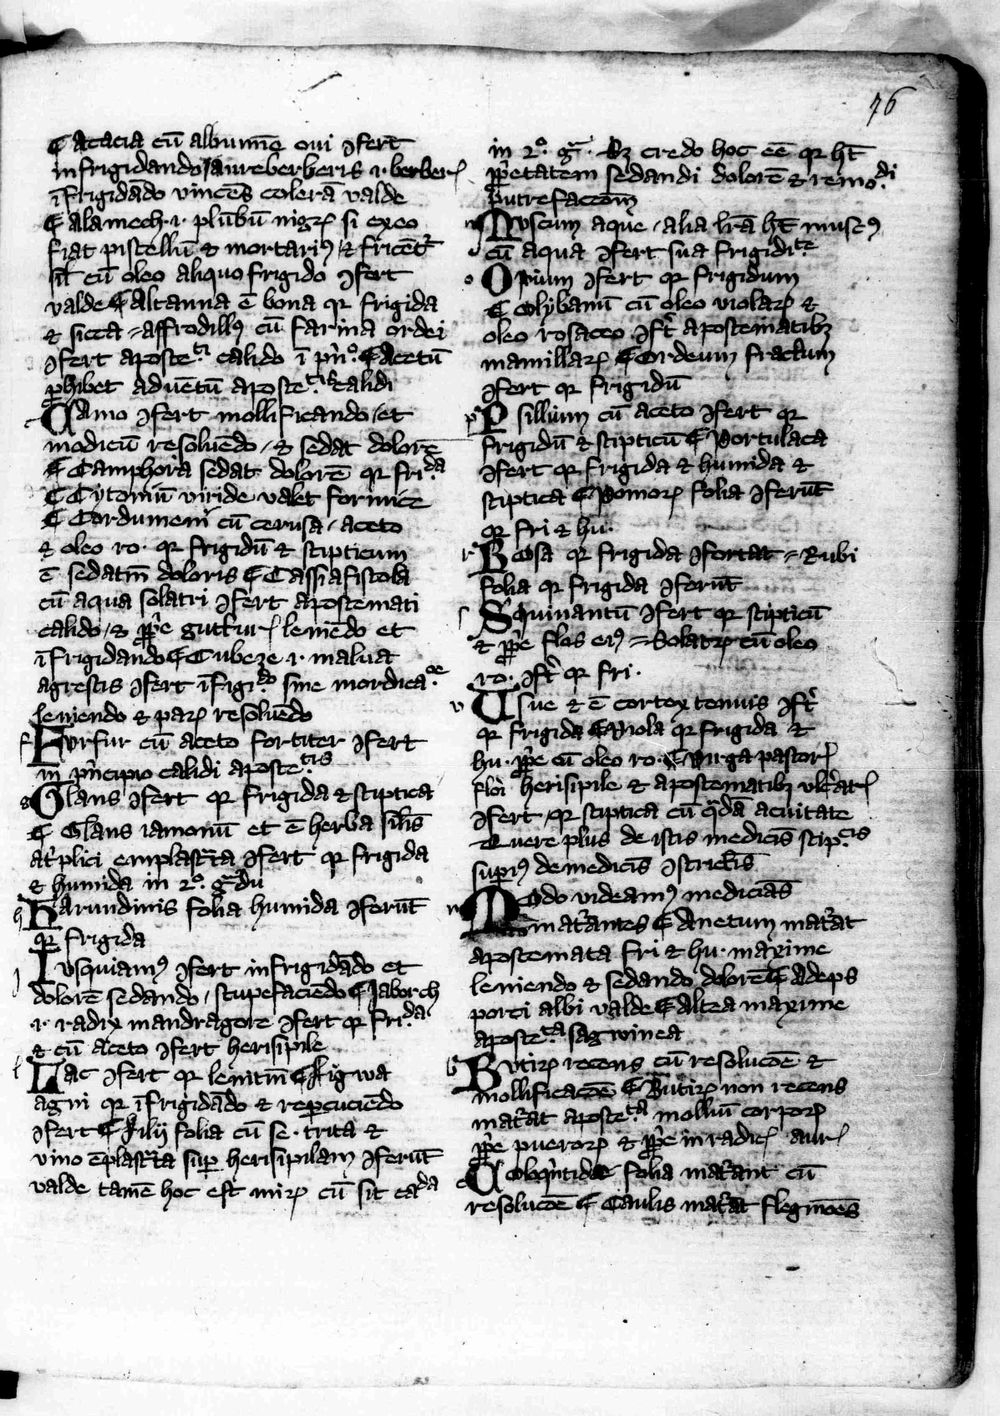 76
¶ Acacia cū albumīe oui ɔfert
infrigidando / aureberberis .i. berber
īfrigidādo vincēs colerā valde
¶ Alamech .i. plūbū nigrꝝ si ex eo
fiat pistellū & mortariꝰ & fricēt̄
sīl cū oleo aliquo frigido ɔfert
valde ¶ Altanna ē bona qꝛ frigida
& sicca / affrodillꝰ cū farina ordei
ɔfert aposteᵗⁱ calido ī pⁿº ¶ Acetū
ꝓhibet aduētū aposteᵗⁱˢ calidi
c Camo ɔfert mollificando / et
modicū resoluēdo / & sedat dolorē
¶ Camphora sedat dolorē qꝛ friᵈᵃ
¶ Cytoniū viride valet formice
¶ Cordumeni cū cerusa / aceto
& oleo ro. qꝛ frigidū & stipticum
ē sedatiū doloris ¶ Cassiafistola
cū aqua solatri ɔfert apostemati
calido / & ꝓprie guttur leniēdo et
īfrigidando ¶ Cubeze .i. malua
agrestis ɔfert īfrigiᵈᵒ sine mordicaᵒᵉ
leniendo & parꝝ resoluēdo
f Furfur cū aceto fortiter ɔfert
in pⁿcipio calidi aposteᵗⁱˢ
g Glans ɔfert qꝛ frigida & stiptica
¶ Glans iamonū et ē herba sīlis
at̄plici emplast̄ta ɔfert qꝛ frigida
& humida in 2º. gᵃdu
h Harundinis folia humida ɔferūt
qꝛ frigida
j Iusquiamꝰ ɔfert infrigidādo et
dolorē sedando / stupefaciēdo ¶ Jaborch
.i. radix mandragore ɔfert qꝛ friᵈᵃ
& cū aceto ɔfert herisipile
l Lac ɔfert qꝛ lenitiū ¶ Ligwa
agni qꝛ īfrigidādo & reꝑcuciēdo
ɔfert ¶ Lilij folia cū se. trita &
vino ēplast̄ta suꝑ herisipilam ɔferūt
valde tamē hoc est mirꝝ cū sit caᵈᵃ
in 2º. gᵃ. Sꝫ credo hoc eē qꝛ hꝫ
ꝓpetatem sedandi dolorē & remoᵈⁱ
putrefaccōem
m Muscum aque / alia lrā hꝫ muscꝰ
cū aqua ɔfert sua frigiditᵗᵉ
o Opium ɔfert qꝛ frigidum
¶ Olybanū cū oleo violarꝝ &
oleo rosaceo ɔfᵗ apostematibꝫ
mamillarꝝ ¶ Ordeum fractum
ɔfert qꝛ frigidū
p Psillium cū aceto ɔfert qꝛ
frigidū & stipticū ¶ Portulaca
ɔfert qꝛ frigida & humida &
stiptica ¶ Pomorꝝ folia ɔferūt
qꝛ fri & hu.
r Rosa qꝛ frigida ɔfortat / Rubi
folia qꝛ frigida ɔferūt
s Squinantū ɔfert qꝛ stipticū
& ꝓprie flos eiꝰ / Solatrꝝ cū oleo
ro. ɔfᵗ qꝛ fri.
v Vsue & ē cortex tenuis ɔfᵗ
qꝛ frigida ¶ Viola qꝛ frigida &
hu. ꝓprie cū oleo ro. ¶ Virga pastorꝝ
herisipile & apostematibꝫ vlcerat
ɔfert / qꝛ stiptica cū qᵃdā acuitate
Quere plus de istis medicis stipᶜⁱˢ
superiꝰ de medicis ɔstrictis
m Modo videamꝰ medicīas
mat̄antes ¶ Anetum mat̄at
apostemata fri & hu. maxime
leniendo & sedando dolorē ¶ Adeps
porci albi valde ¶ Altea maxime
aposteᵗᵃ sagwinea
b Butirꝝ recens cū resolucōe &
mollificacōe ¶ Butirꝝ non recens
mat̄at aposteᵗᵃ molliū corporꝝ
ꝓprie puerorꝝ & ꝓprie in radicꝝ aurꝝ
c Coloqⁿtide folia mat̄ant cū
resolucōe ¶ Caulis mat̄at flegmoēs